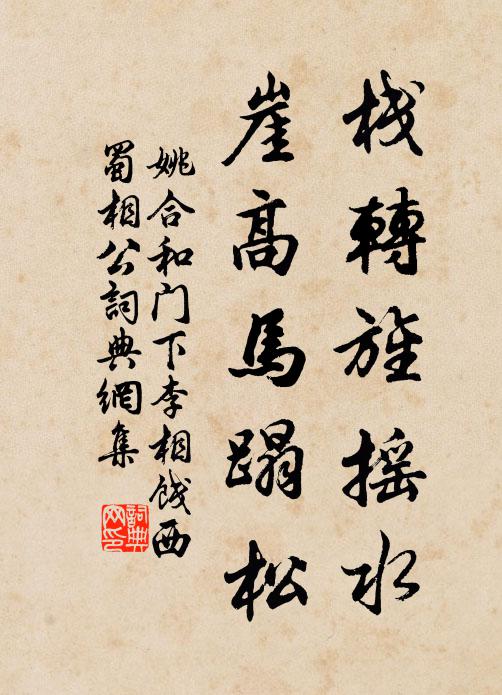 栈轉旌摇水
崖高馬蹋松
姚合和门下李相饯西
蜀相公詞典網集
詞典网印